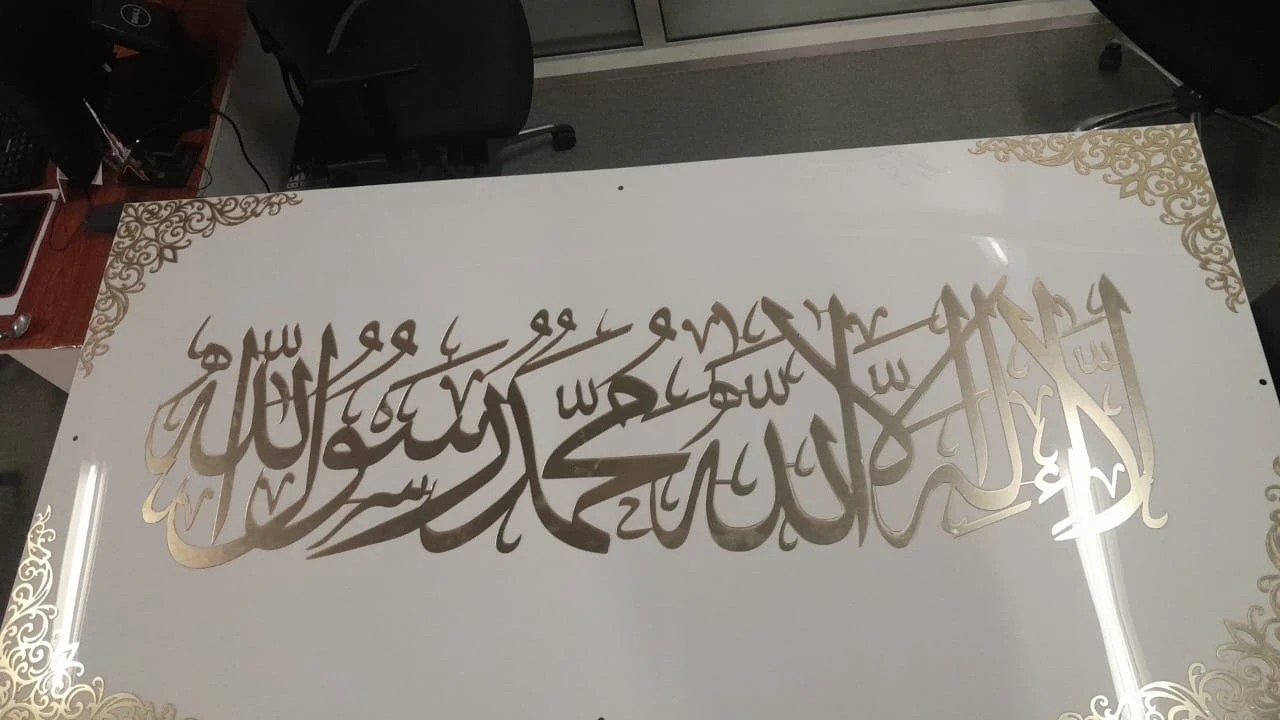 لا إله إلا الله محمد رسول الله
DELL